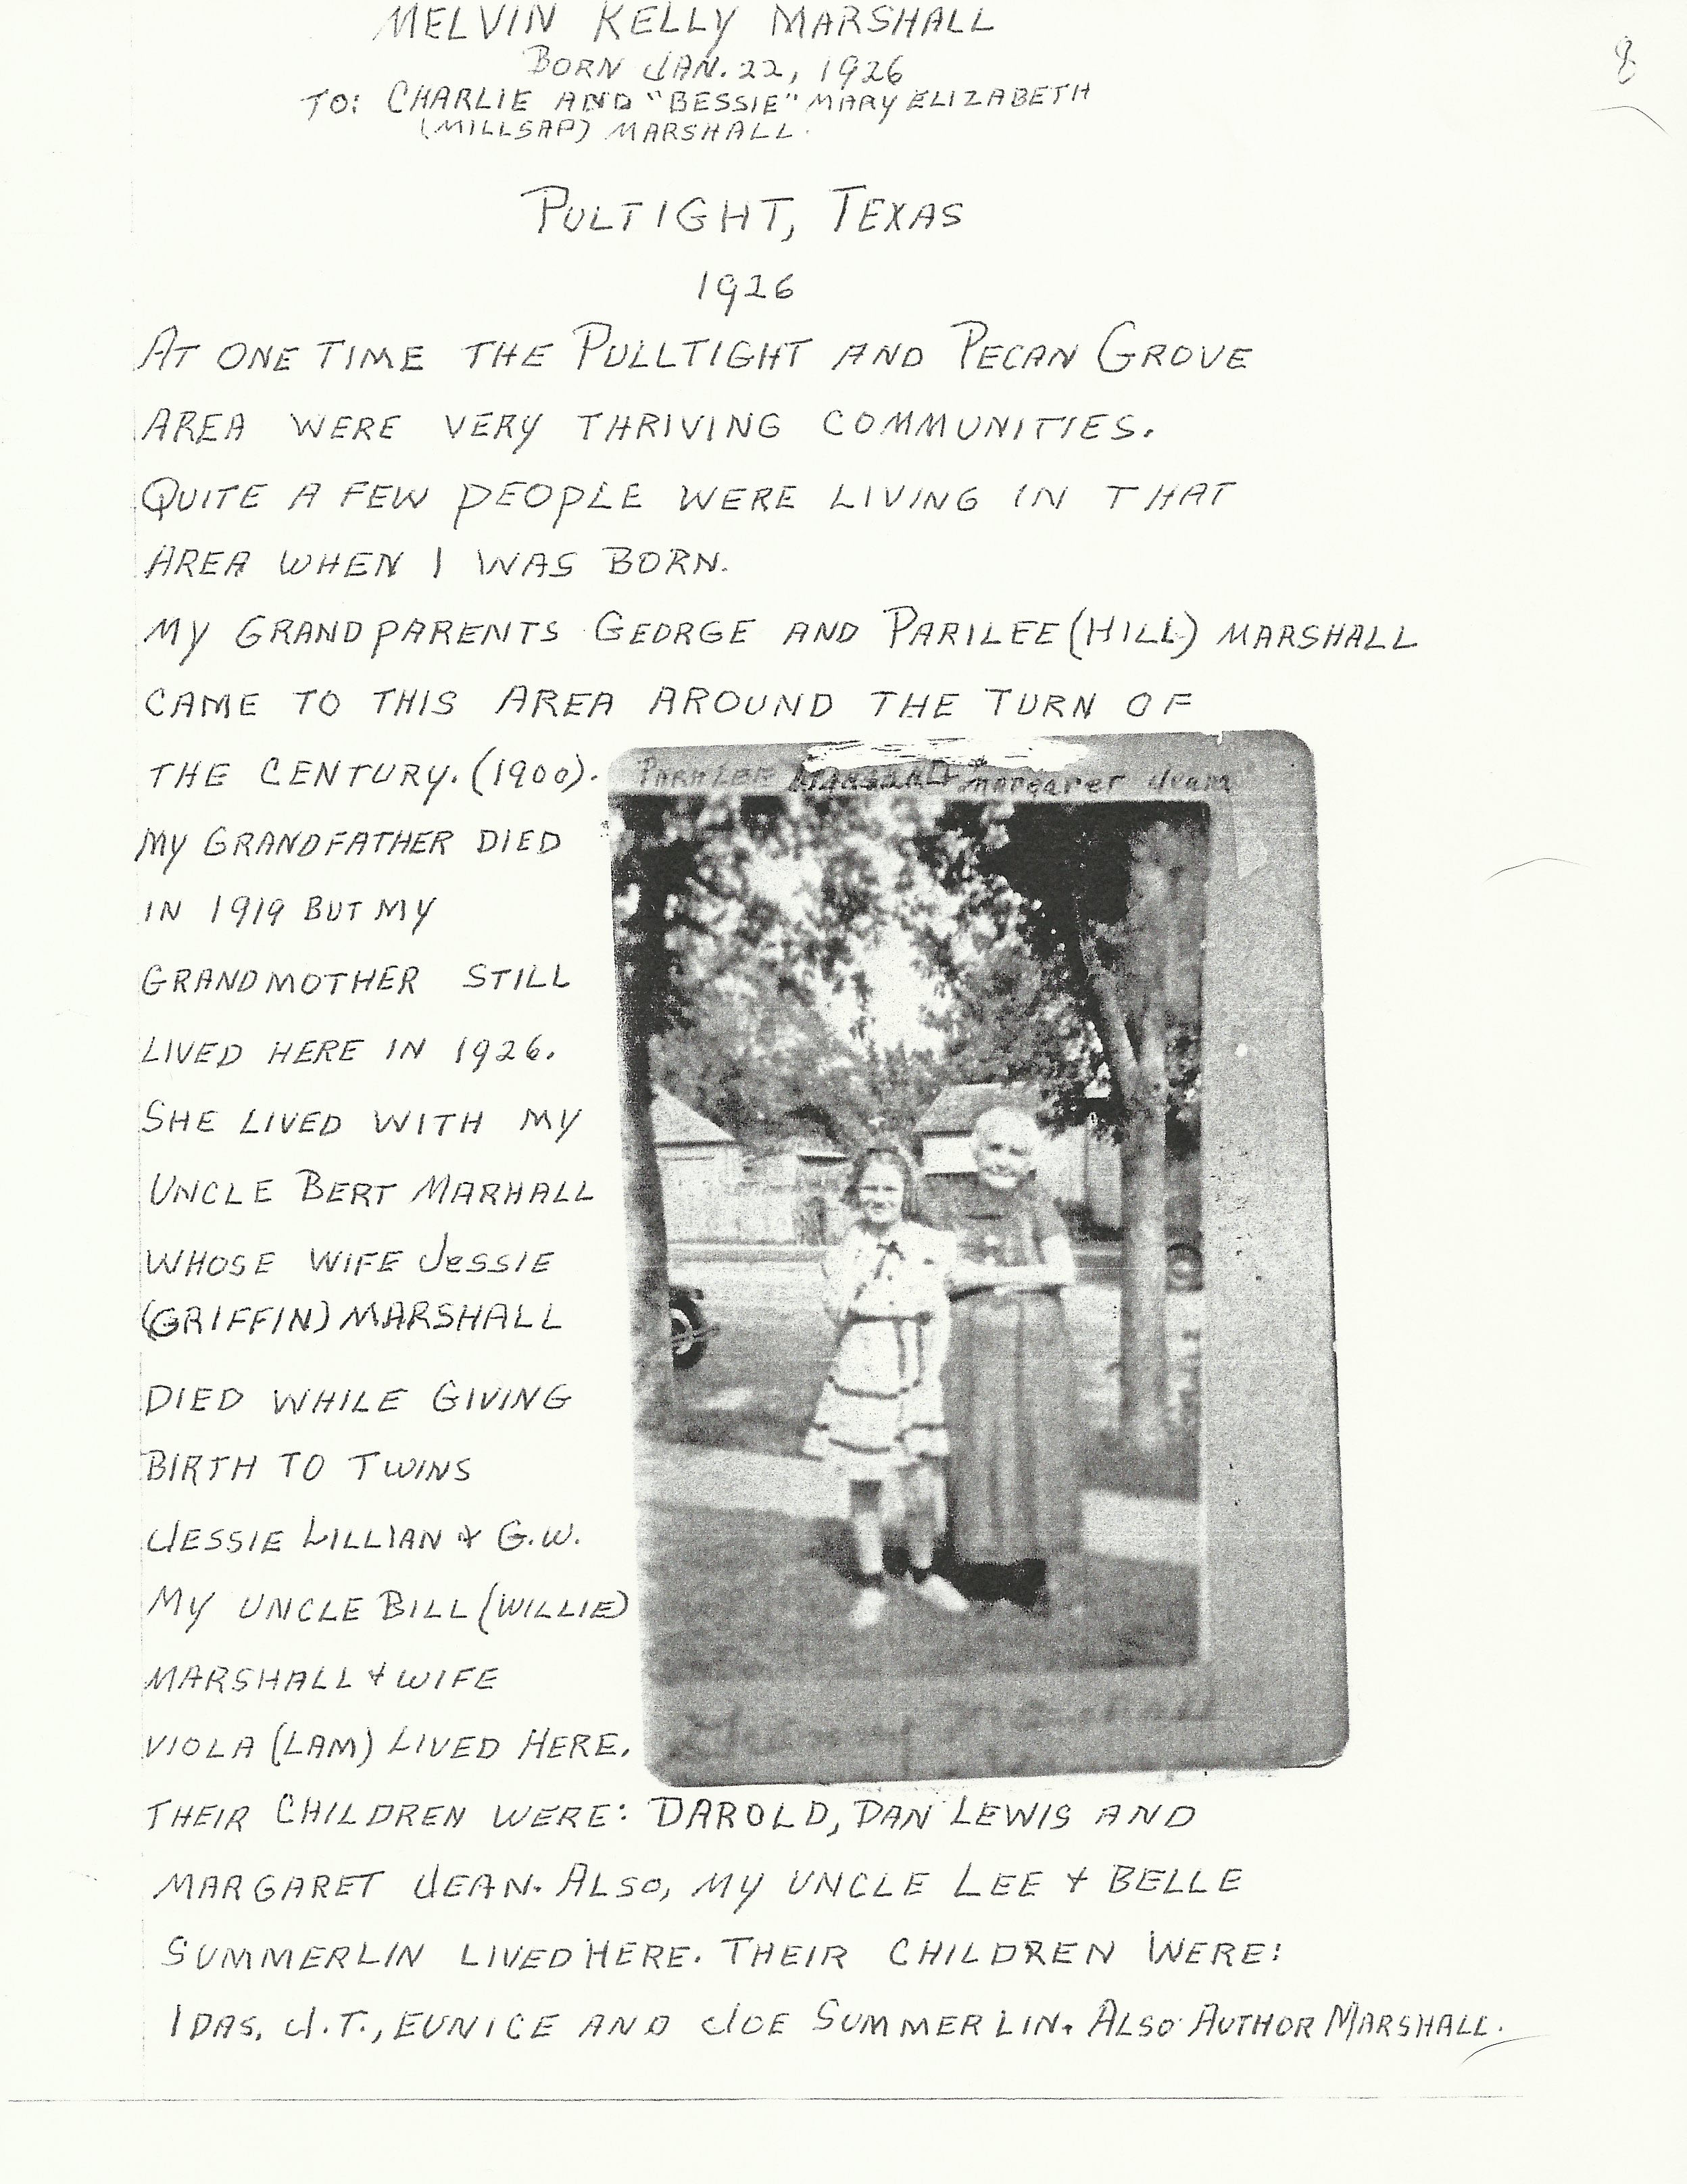 MELVIN KELLY MARSHALL
8
BORN JAN. 22, 1926
TO: CHARLIE AND "BESSIE" MARY ELIZABETH
(MILLSAP) MARSHALL.
PULTIGHT, TEXAS
1926
AT ONE TIME THE PULLTIGHT AND PECAN GROVE
AREA WERE VERY THRIVING COMMUNITIES.
QUITE A FEW PEOPLE WERE LIVING IN THAT
AREA WHEN I WAS BORN.
MY GRANDPARENTS GEORGE AND PARILEE (HILL) MARSHALL
CAME TO THIS AREA AROUND THE TURN OF
THE CENTURY. (1900).
PARALEE MARSHALL & Margaret Jean
MY GRANDFATHER DIED
IN 1919 BUT MY
GRANDMOTHER STILL
LIVED HERE IN 1926.
SHE LIVED WITH MY
UNCLE BERT MARHALL
WHOSE WIFE JESSIE
(GRIFFIN) MARSHALL
DIED WHILE GIVING
BIRTH TO TWINS
JESSIE LILLIAN & G.W.
MY UNCLE BILL (WILLIE)
MARSHALL & WIFE
VIOLA (LAM) LIVED HERE.
Granny Marshall
THEIR CHILDREN WERE: DAROLD, DAN LEWIS AND
MARGARET JEAN. ALSO, MY UNCLE LEE & BELLE
SUMMERLIN LIVED HERE. THEIR CHILDREN WERE:
IDAS, J.T., EUNICE AND JOE SUMMERLIN. ALSO AUTHOR MARSHALL.